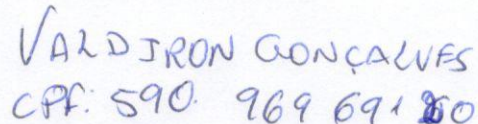 VALDIRON GONÇALVES
CPF: 590. 969 691 20